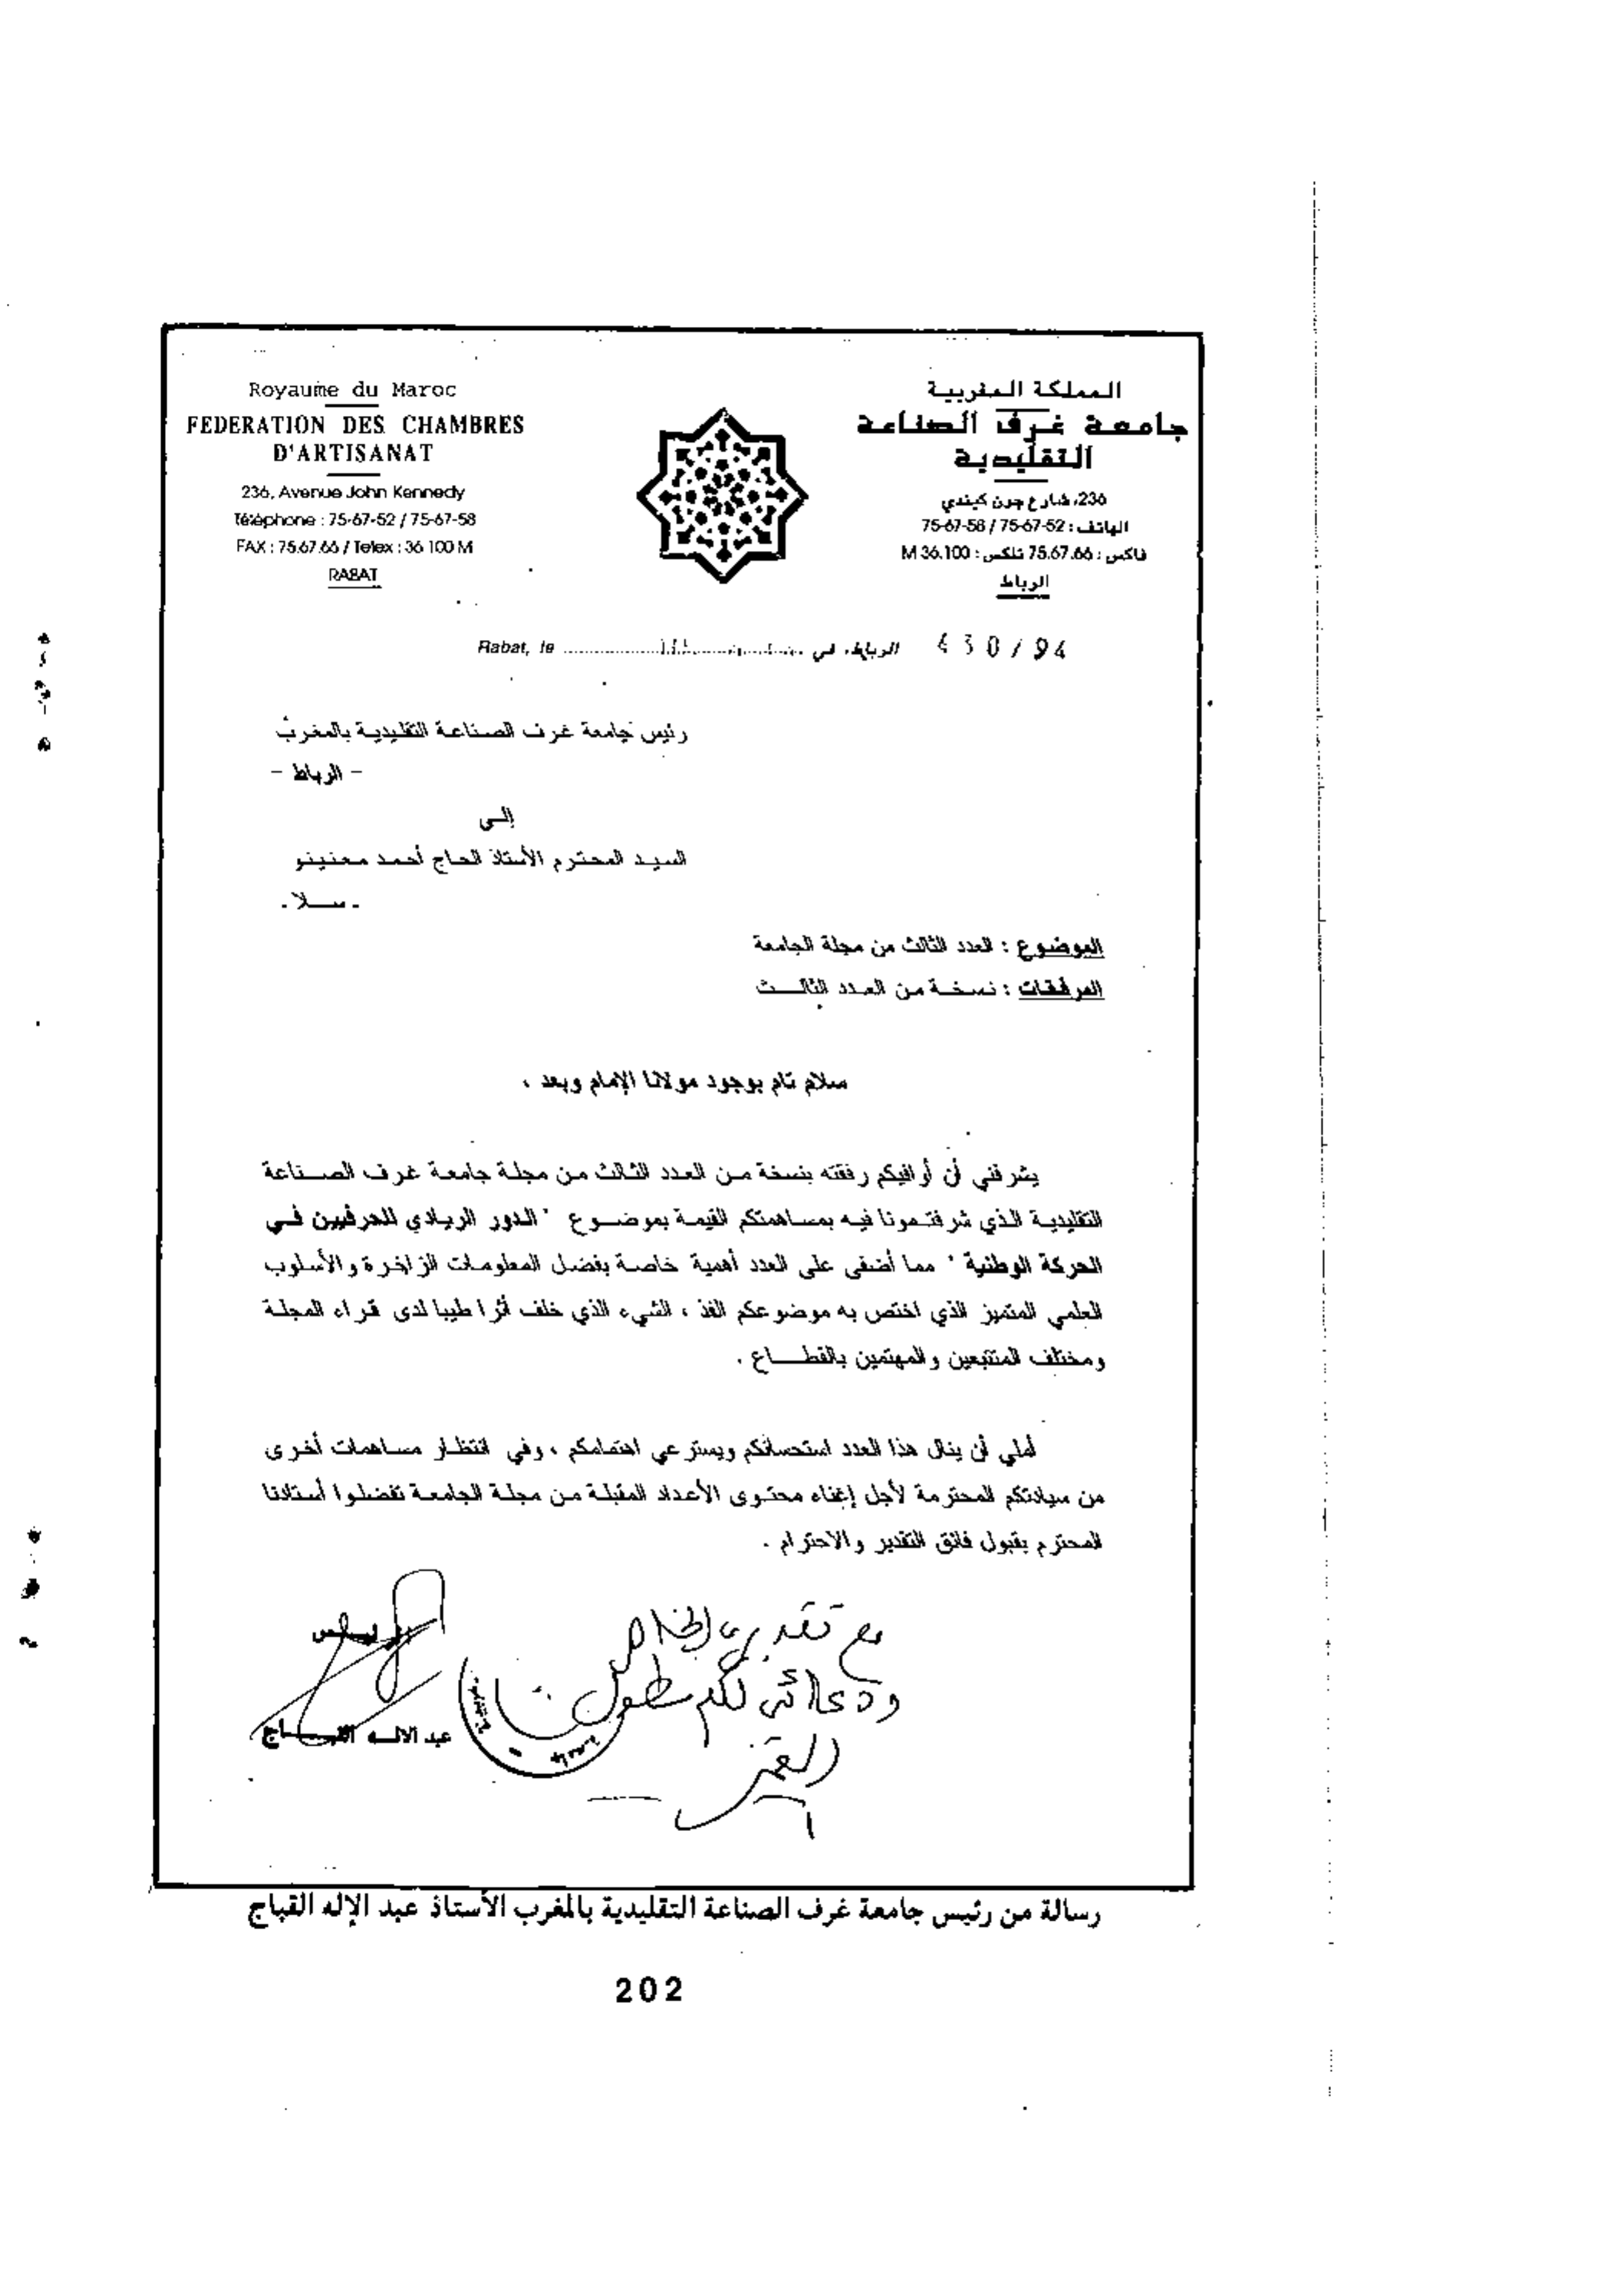 Royaume du Maroc
FEDERATION DES CHAMBRES
D'ARTISANAT
236, Avenue John Kennedy
Téléphone : 75-67-52 / 75-67-58
FAX : 75.67.66 / Telex : 36 100 M
RABAT
المملكة المغربية
جامعة غرف الصناعة
التقليدية
236، شارع جون كيندي
الهاتف : 75-67-52 / 75-67-58
فاكس : 75.67.66 تلكس : 36.100 M
الرباط
430/94
الرباط، في
Rabat, le
رئيس جامعة غرف الصناعة التقليدية بالمغرب
- الرباط -
إلى
السيد المحترم الأستاذ الحاج أحمد معنينو
- سلا -
الموضوع : العدد الثالث من مجلة الجامعة
المرفقات : نسخة من العدد الثالث
سلام تام بوجود مولانا الإمام وبعد ،
يشرفني أن أوافيكم رفقته بنسخة من العدد الثالث من مجلة جامعة غرف الصناعة
التقليدية الذي شرفتمونا فيه بمساهمتكم القيمة بموضوع " الدور الريادي للحرفيين في
الحركة الوطنية " مما أضفى على العدد أهمية خاصة بفضل المعلومات الزاخرة والأسلوب
العلمي المتميز الذي اختص به موضوعكم الفذ ، الشيء الذي خلف أثرا طيبا لدى قراء المجلة
ومختلف المتتبعين والمهتمين بالقطاع .
أملي أن ينال هذا العدد استحسانكم ويسترعي اهتمامكم ، وفي انتظار مساهمات أخرى
من سيادتكم المحترمة لأجل إغناء محتوى الأعداد المقبلة من مجلة الجامعة تفضلوا أستاذنا
المحترم بقبول فائق التقدير والاحترام .
مع تقديري الخالص
ودعائي لكم بطول
العمر
الرئيس
عبد الاله القباج
رسالة من رئيس جامعة غرف الصناعة التقليدية بالمغرب الأستاذ عبد الإله القباج
202